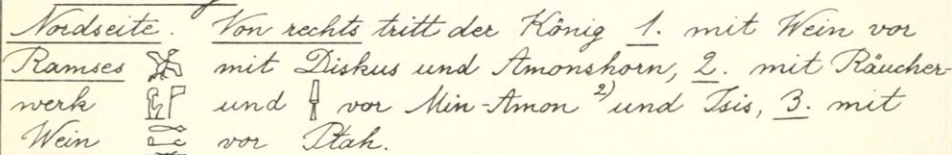 Nordseite. Von rechts tritt der König 1. mit Wein vor
Ramses mit Diskus und Amonshorn, 2. mit Räucher-
werk und vor Min-Amon 2) und Isis, 3. mit
Wein vor Ptah.